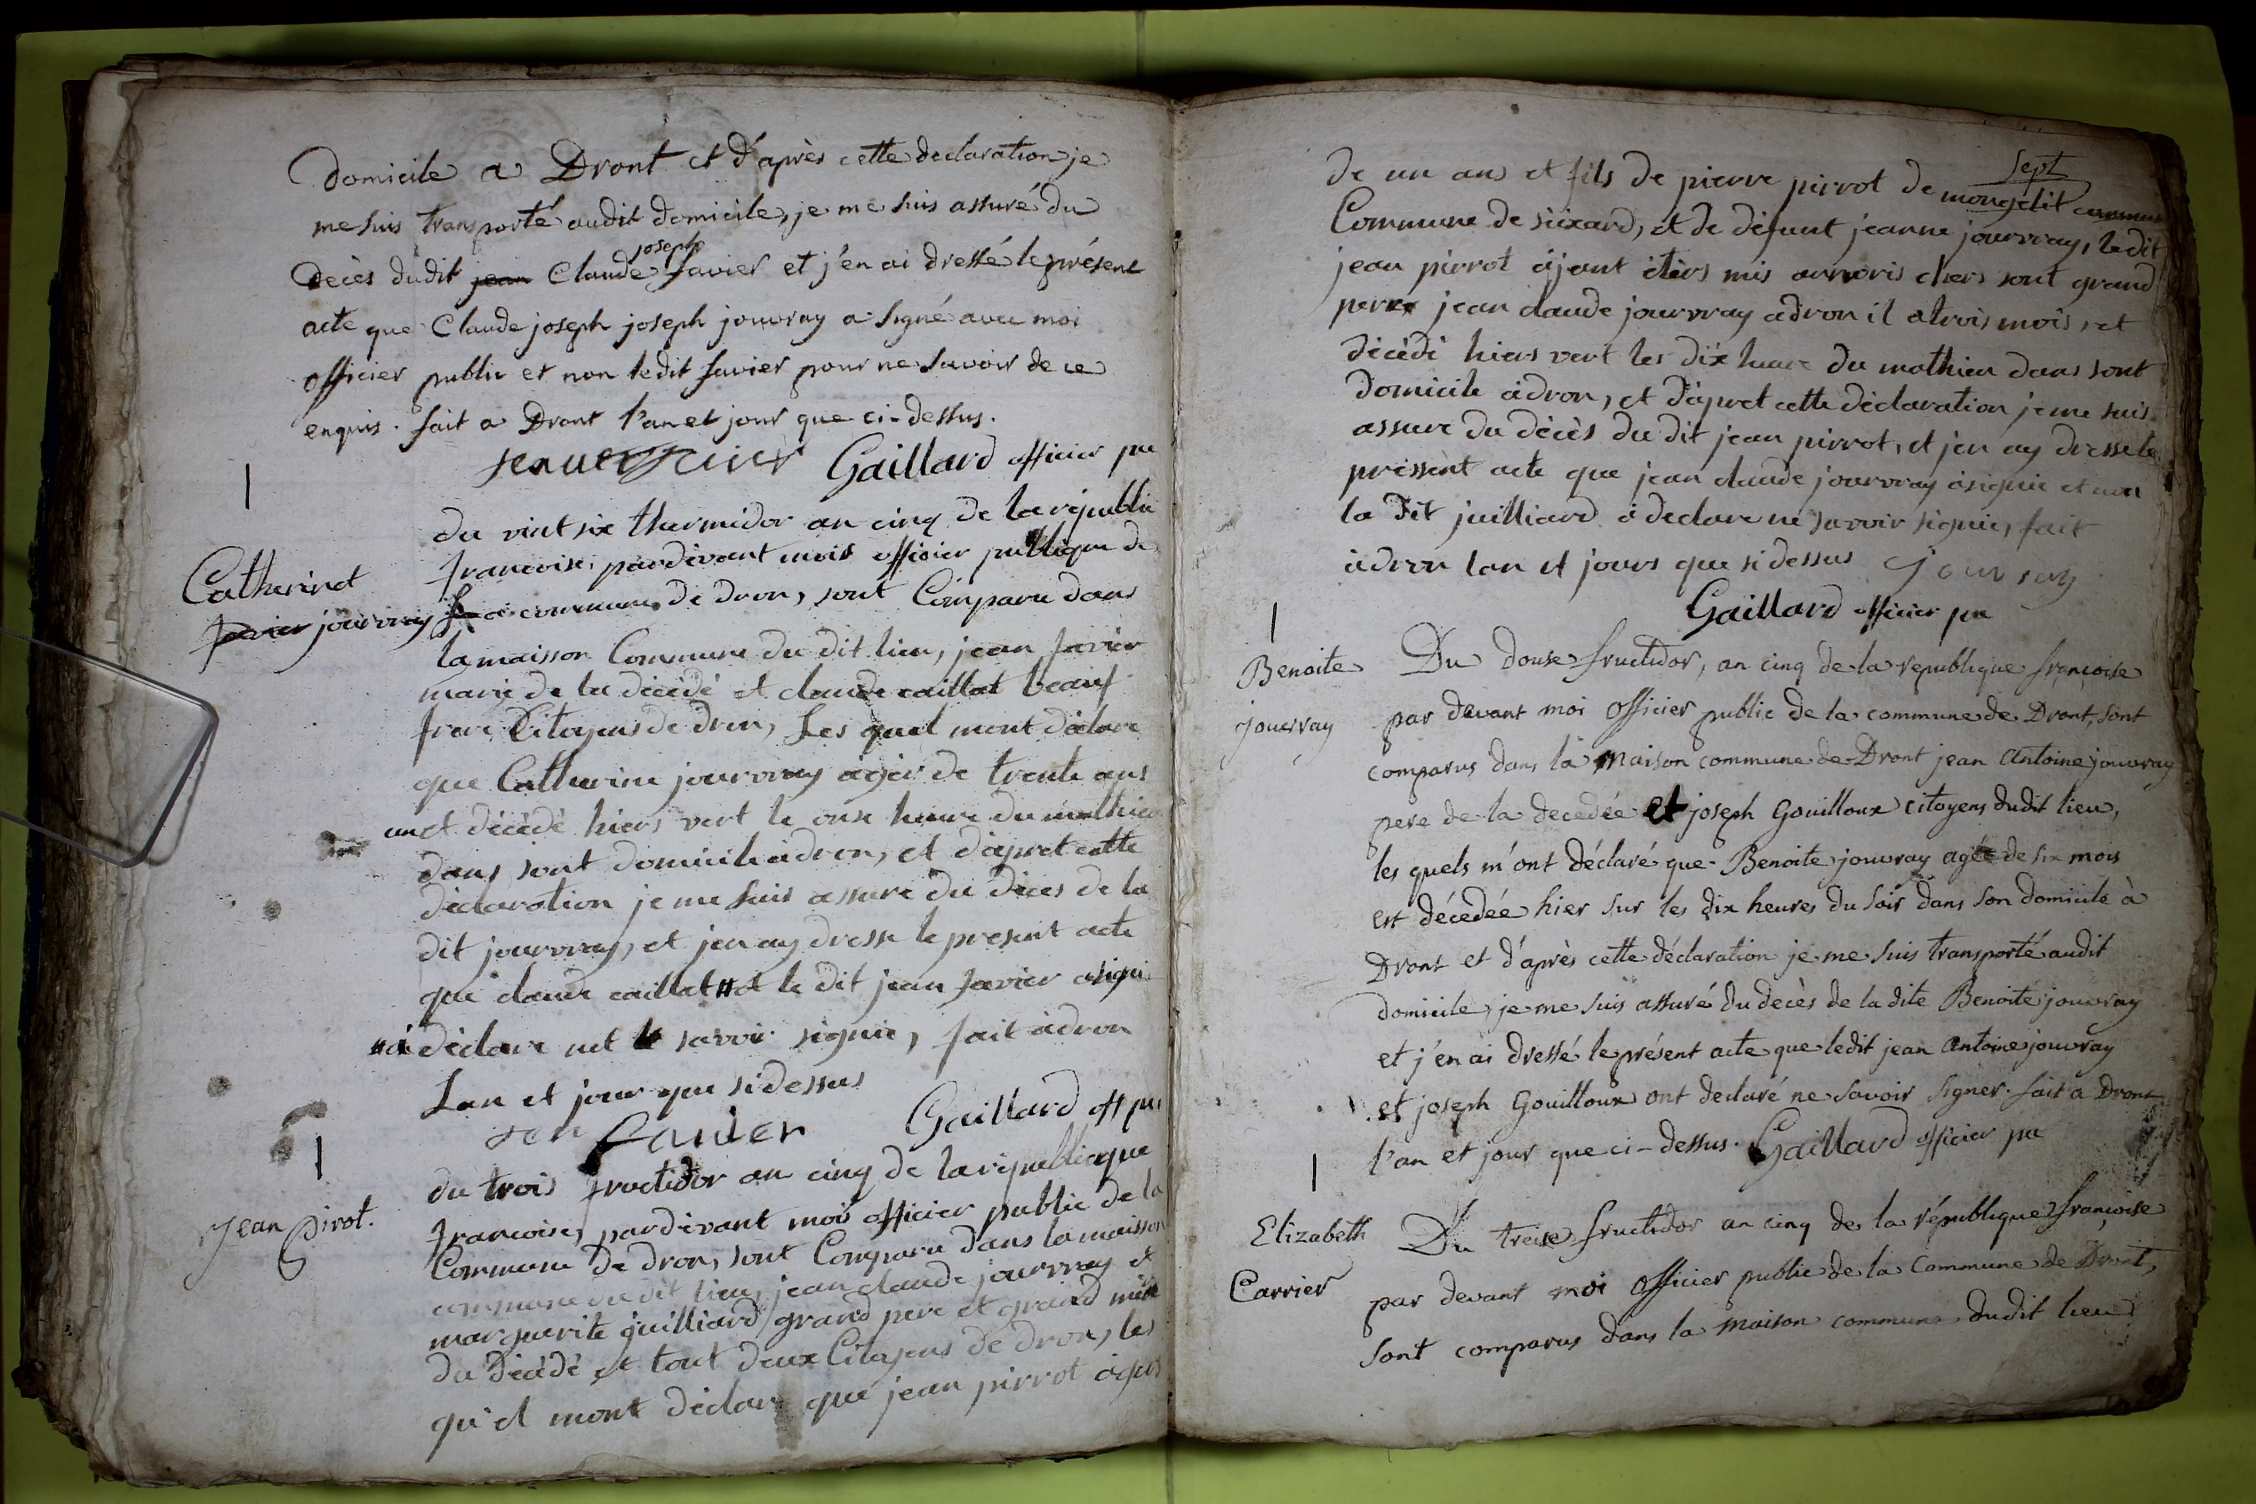 domicile a Dront et d'après cette declaration je
me suis transporté audit domicile, je me suis assuré du
joseph
decès dudit jean Claude Savier et j'en ai dressé le présent
acte que Claude joseph joseph jouvray a signé avec moi
officier public et non ledit Savier pour ne savoir de ce
enquis. fait a Dront l'an et jour que ci-dessus.
Gaillard officier pu
du vint six thermidor an cinq de la republi
francoise, pardevant mois officier publique de
Catherinet
Javier jouvray
la commune de dron, sont Comparu dans
la maisson Commune du dit lieu, jean Javier
marie de la décédé et claude caillat beauf
frere Citoyens de dron, Les quel mont déclare
que Catherine jourvray agér de trente ans
und décédé hiers vert le onse heure du mathieu
dans sont domicile à dron, et d'apret cette
déclaration je me suis assure du déces de la
dit jourvray, et jen ay dresse le present acte
que claude caillat # et le dit jean Javier a signi
# a déclare net le savoir signie, fait à dron
Lan et jour que si dessus
Jen Savier Gaillard off pu
Jean Pirot.
du trois fructidor an cinq de la républicque
francoise, pardevant mois officier public de la
Commune de dron, sont Comparu dans la maisson
commune du dit lieu, jean claude jourvray et
marguerite juilliard grand pere et grand mère
du décédé et tout deux Citoyens de dron, les
qu'el mont déclare que jean pirrot àgés
sept
de un ans et fils de pierre pirrot de mongelit commune
Commune de siixard, et de défunt jeanne jourvray, le dit
jean pirrot àjant étèrs mis annoris chers sont grand
perre jean claude jourvray à dron il a trois mois, et
décédé hiers vert les dix heure du mathieu dans sont
domicile à dron, et d'apret cette déclaration je me suis
assure du décès du dit jean pirrot, et jen ay dresse le
préssent acte que jean claude jourvray à signie et non
la dit juilliard à declare ne savoir signie, fait
à dron lan et jours que si dessus Jouvray
Gaillard officier pu
Benoite
Jouvray
Du douse fructidor, an cinq de la republique françoise
par devant moi officier public de la commune de Dront, sont
comparus dans la maison commune de Dront jean Antoine jouvray
pere de la decedée et joseph Gouilloux citoyens dudit lieu,
les quels m'ont déclaré que Benoite jouvray agée de six mois
est décedée hier sur les dix heures du soir dans son domicile à
Dront et d'après cette déclaration je me suis transporté audit
domicile, je me suis assuré du decès de la dite Benoite jouvray
et j'en ai dressé le présent acte que ledit jean Antoine jouvray
et joseph Gouilloux ont declaré ne savoir signer. fait a Dront
l'an et jour que ci-dessus. Gaillard officier pu
Elizabeth
Carrier
Du treise fructidor an cinq de la république françoise
par devant moi officier public de la Commune de Dront,
sont comparus dans la maison commune dudit lieu